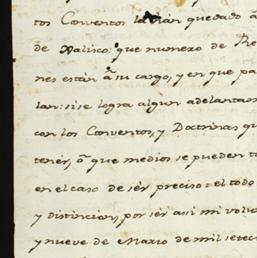 tos Conventos la han quedado á
de Xalisco: que numero de Re
nes están á su cargo, y en que pa
lan: si se logra algun adelantam
con los Conventos, y Doctrinas qu
tener, ó que medios se pueden to
en el caso de sér preciso = el todo
y distincion, por sér asi mi volu
y nueve de Marzo de mil setec